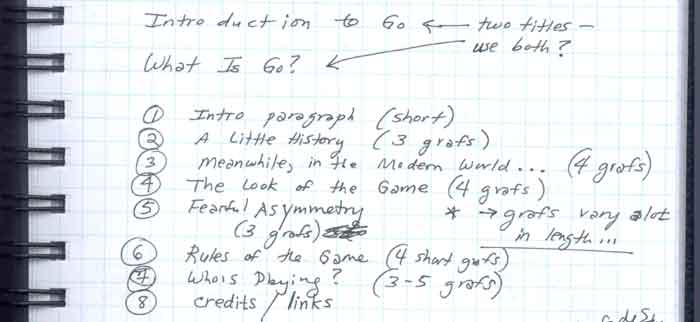 Introduction to Go ← two titles –
use both?
What Is Go?
① Intro paragraph (short)
② A Little History (3 grafs)
③ Meanwhile, in the Modern World... (4 grafs)
④ The Look of the Game (4 grafs)
⑤ Fearful Asymmetry * → grafs vary alot
(3 grafs) in length...
⑥ Rules of the Game (4 short grafs)
⑦ Whois Playing? (3-5 grafs)
⑧ credits / links